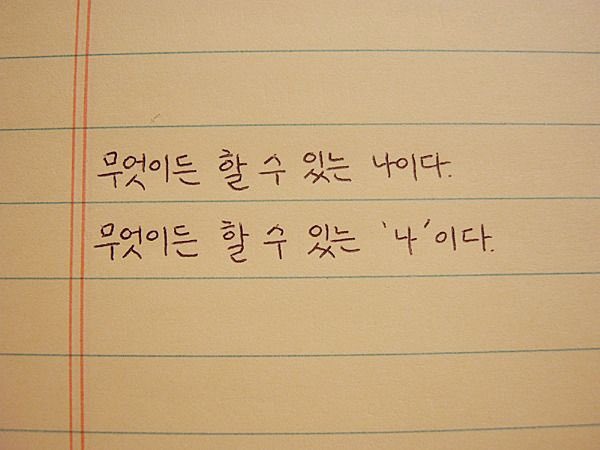 무엇이든 할 수 있는 나이다.
무엇이든 할 수 있는 '나'이다.